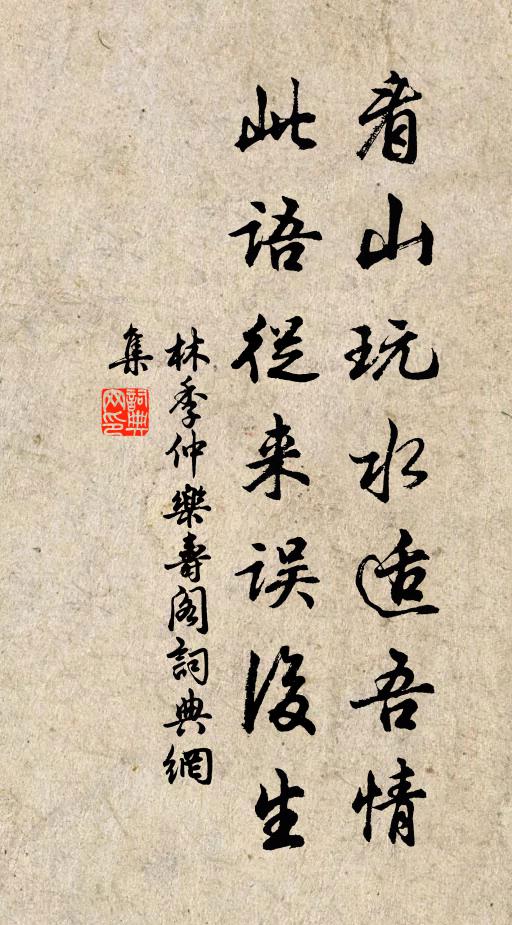 看山玩水适吾情
此语從来误後生
林季仲樂壽阁詞典網
集
詞典網印